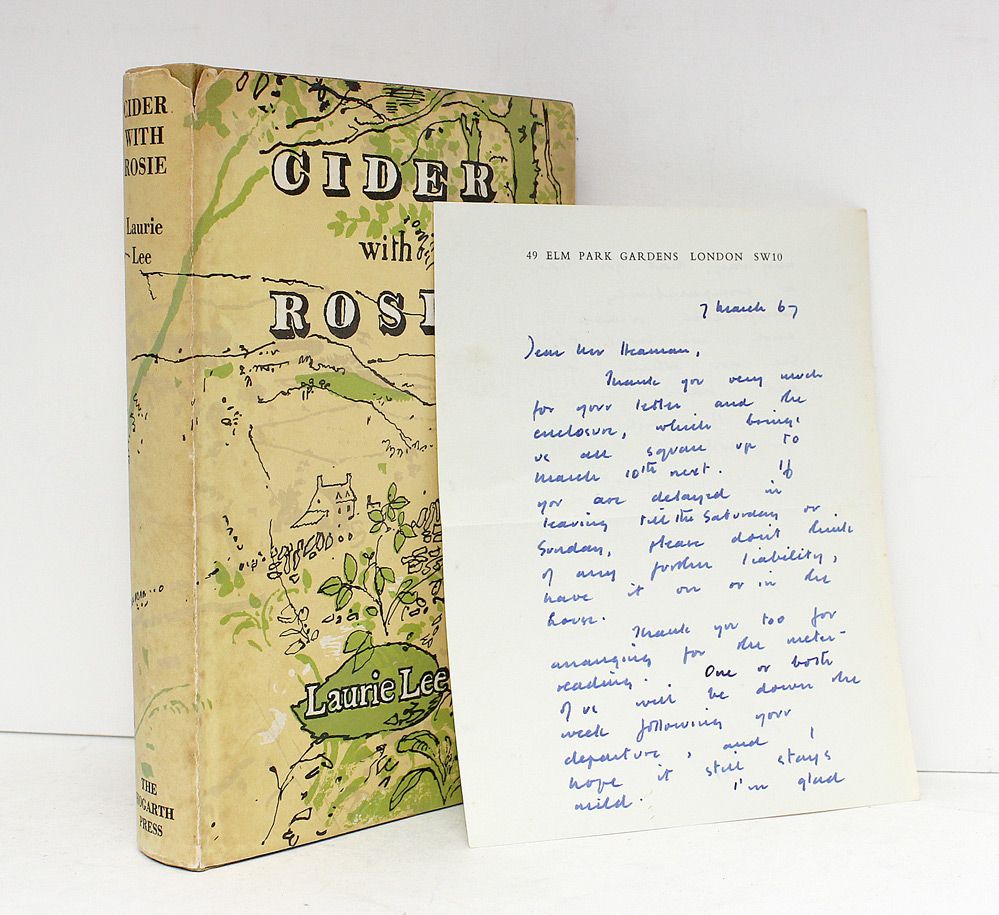 CIDER
WITH
ROSIE
Laurie
Lee
THE
HOGARTH
PRESS
CIDER
with
ROSI
Laurie Lee
49 ELM PARK GARDENS LONDON SW10
7 March 67
Dear Mr Heaman,
Thank you very much
for your letter and the
enclosure, which brings
us all square up to
March 10th next. If
you are delayed in
leaving till the Saturday or
Sunday, please don't think
of any further liability,
have it on or in the
house.
Thank you too for
arranging for the meter-
reading. One or both
of us will be down the
week following your
departure, and I
hope it still stays
mild. I'm glad